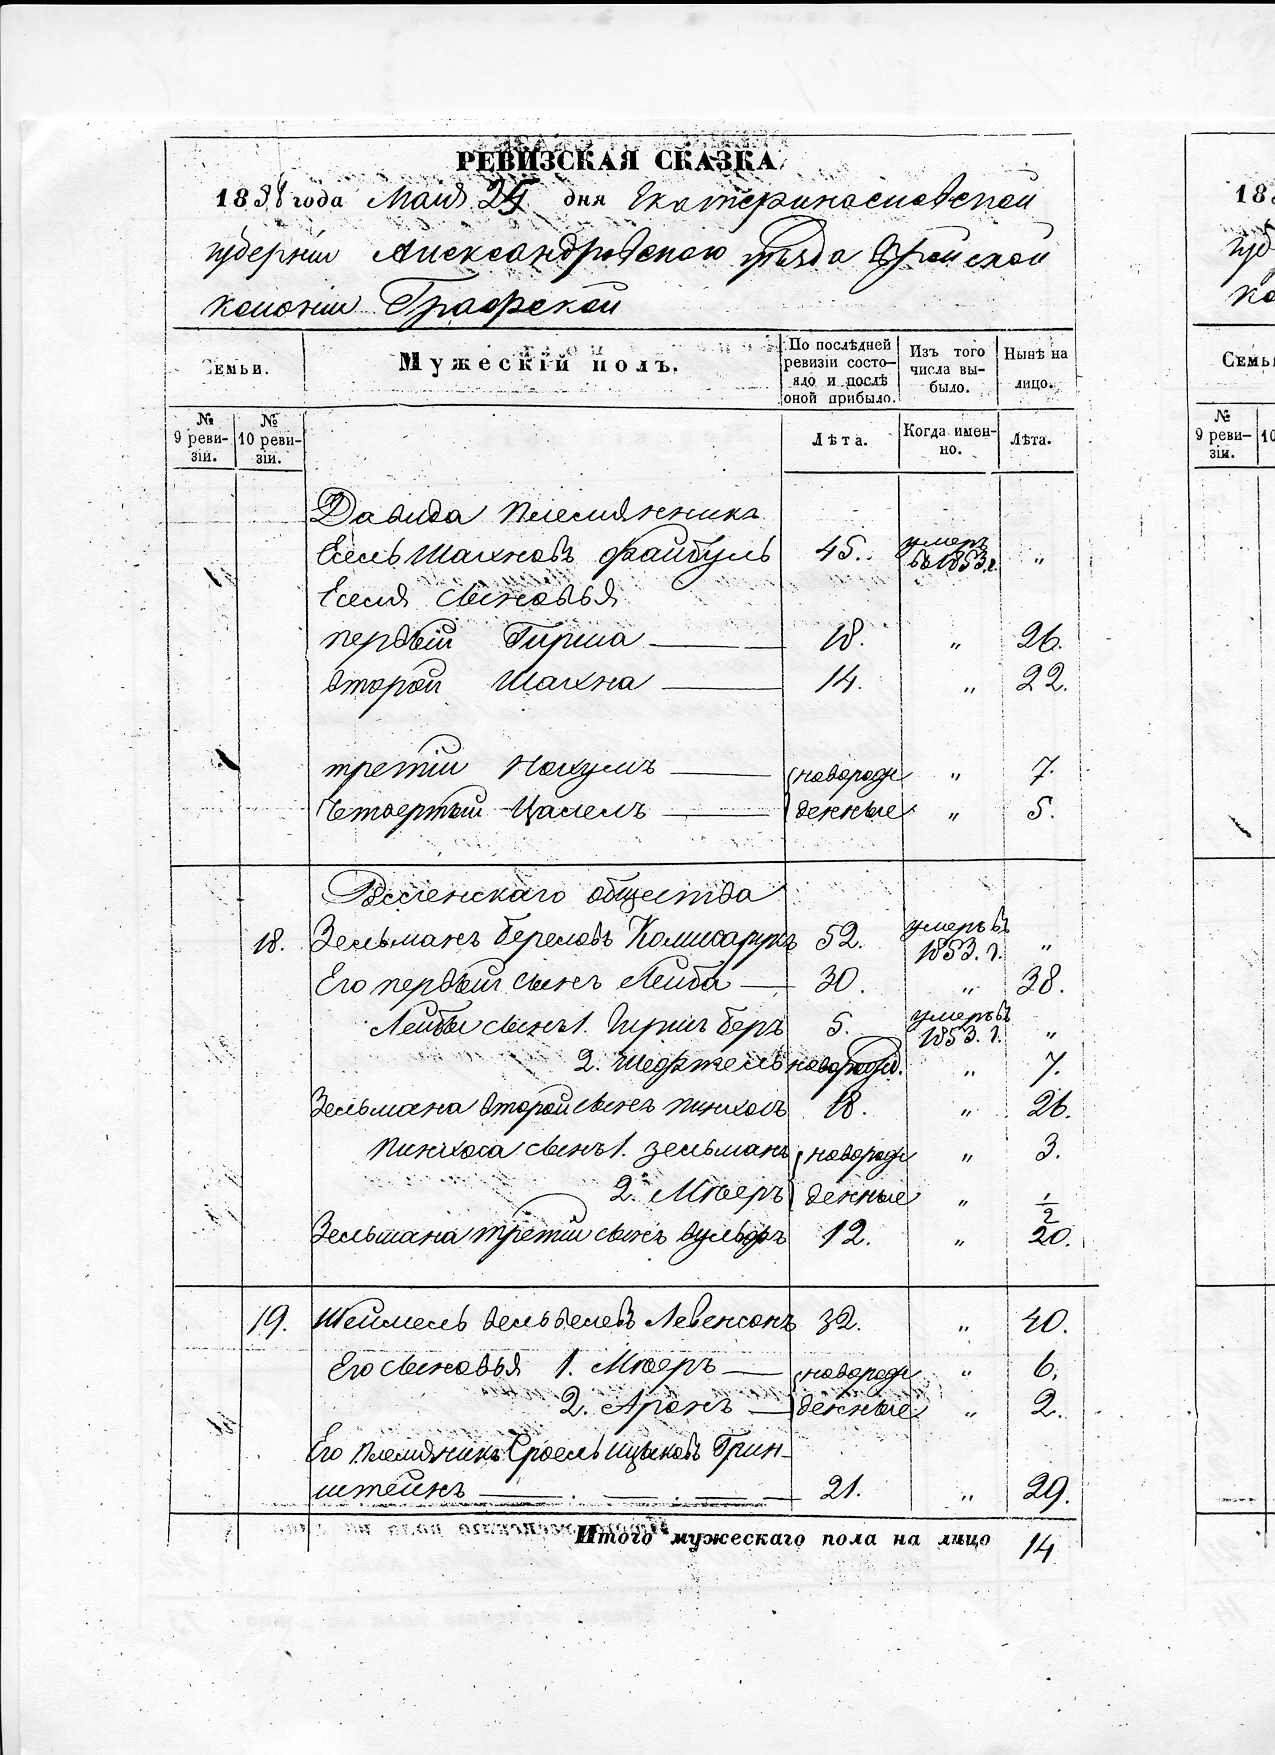 РЕВИЗСКАЯ СКАЗКА
1858 года Мая 25 дня Екатеринославской
губерніи Александровского уѣзда Еврейской
колоніи Графской
Семьи.
Мужескій полъ.
По послѣдней ревизіи состояло и послѣ оной прибыло.
Изъ того числа выбыло.
Нынѣ на лицо.
№ 9 ревизіи.
№ 10 ревизіи.
Лѣта.
Когда именно.
Лѣта.
Давида племянникъ
Есель Шахновъ Файбуль 45. умеръ въ 1853 г. „
Еселя сыновья
первый Гирша 18. „ 26.
второй Шахна 14. „ 22.
третій Нохумъ новорож „ 7.
Четвертый Цалелъ денные „ 5.
общества
18. Зельманъ Береловъ Комисарукъ 52. умеръ въ 1853. г. „
Его первый сынъ Лейба 30. „ 38.
Лейбы сынъ 1. Гиршъ Беръ 5. умеръ въ 1853. г. „
2. новорожд. „ 7.
Зельмана второй сынъ Пинхосъ 18. „ 26.
Пинхоса сынъ 1. Зельманъ новорож „ 3.
2. Мееръ денные „ 1/2
Зельмана третій сынъ Вульфъ 12. „ 20.
19. Шеймель Левенсонъ 32. „ 40.
Его сыновья 1. Мееръ новорож „ 6.
2. Аронъ денные „ 2.
Его племянникъ Сроель Ицыковъ Грин-
штейнъ 21. „ 29.
Итого мужескаго пола на лицо 14
183
губ
ко
Семьи
№ 9 ревизіи.
10